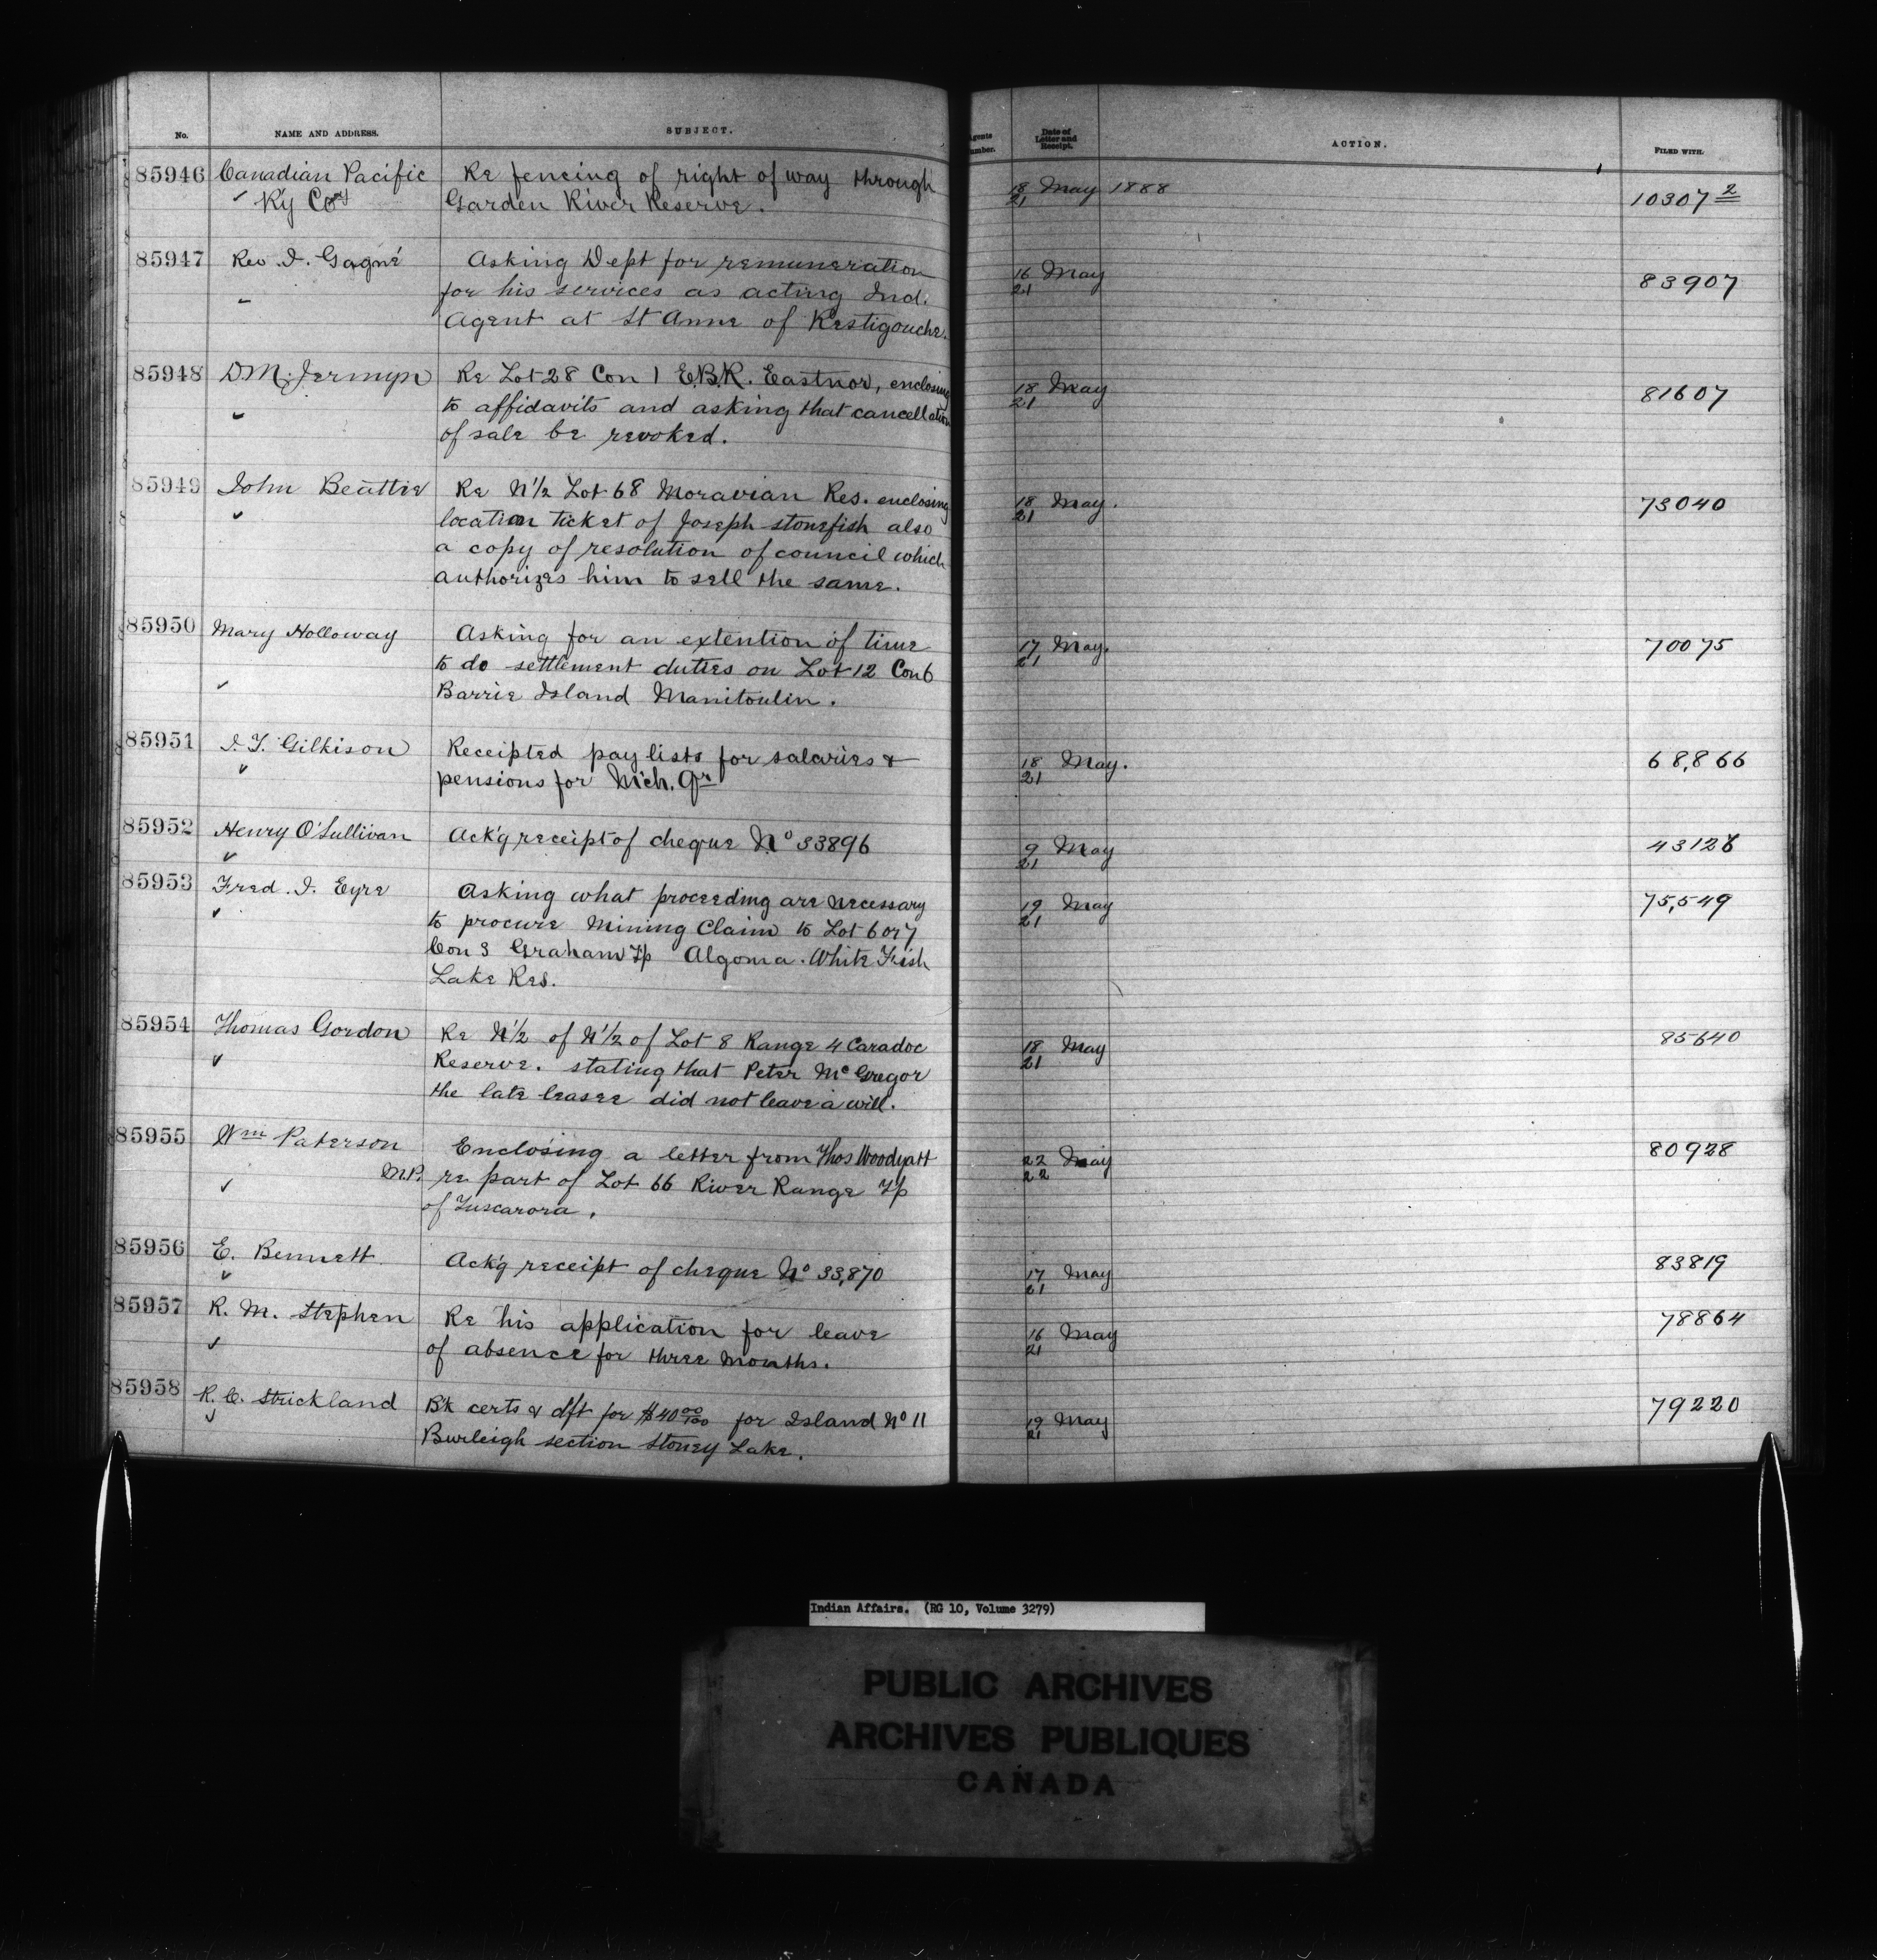 No. NAME AND ADDRESS. SUBJECT. Agents Number. Date of Letter and Receipt. ACTION. FILED WITH.
85946 Canadian Pacific Re fencing of right of way through 18 May 1888 10307 2
Ry Coy Garden River Reserve. 21
85947 Rev J. Gagné Asking Dept for remuneration 16 May 83907
for his services as acting Ind. 21
Agent at St Anne of Restigouche.
85948 D. M. Jermyn Re Lot 28 Con 1 E.B.R. Eastnor, enclosing 18 May 81607
to affidavits and asking that cancellation 21
of sale be revoked.
85949 John Beattie Re N 1/2 Lot 68 Moravian Res. enclosing 18 May. 73040
location ticket of Joseph Stonefish also 21
a copy of resolution of council which
authorizes him to sell the same.
85950 Mary Holloway Asking for an extention of time 17 May. 70075
to do settlement duties on Lot 12 Con 6 21
Barrie Island Manitoulin.
85951 J. T. Gilkison Receipted pay lists for salaries & 18 May. 68,866
pensions for Mich. Qr 21
85952 Henry O'Sullivan Ack'g receipt of cheque No 33896 9 May
21
85953 Fred. J. Eyre Asking what proceeding are necessary 19 May 75,549
to procure Mining Claim to Lot 6 or 7 21
Con 3 Graham Tp Algoma. White Fish
Lake Res.
85954 Thomas Gordon Re N 1/2 of N 1/2 of Lot 8 Range 4 Caradoc 18 May 85640
Reserve. stating that Peter McGregor 21
the late leasee did not leave a will.
85955 Wm Paterson Enclosing a letter from Thos Woodyatt 22 May 80928
M.P. re part of Lot 66 River Range Tp 22
of Tuscarora.
85956 E. Bennett Ack'g receipt of cheque No 33,870 17 May 83819
21
85957 R. M. Stephen Re his application for leave 16 May 78864
of absence for three months. 21
85958 R. C. Strickland Bk certs & dft for $40 00/100 for Island No 11 19 May 79220
Burleigh section Stoney Lake. 21
Indian Affairs. (RG 10, Volume 3279)
PUBLIC ARCHIVES
ARCHIVES PUBLIQUES
CANADA